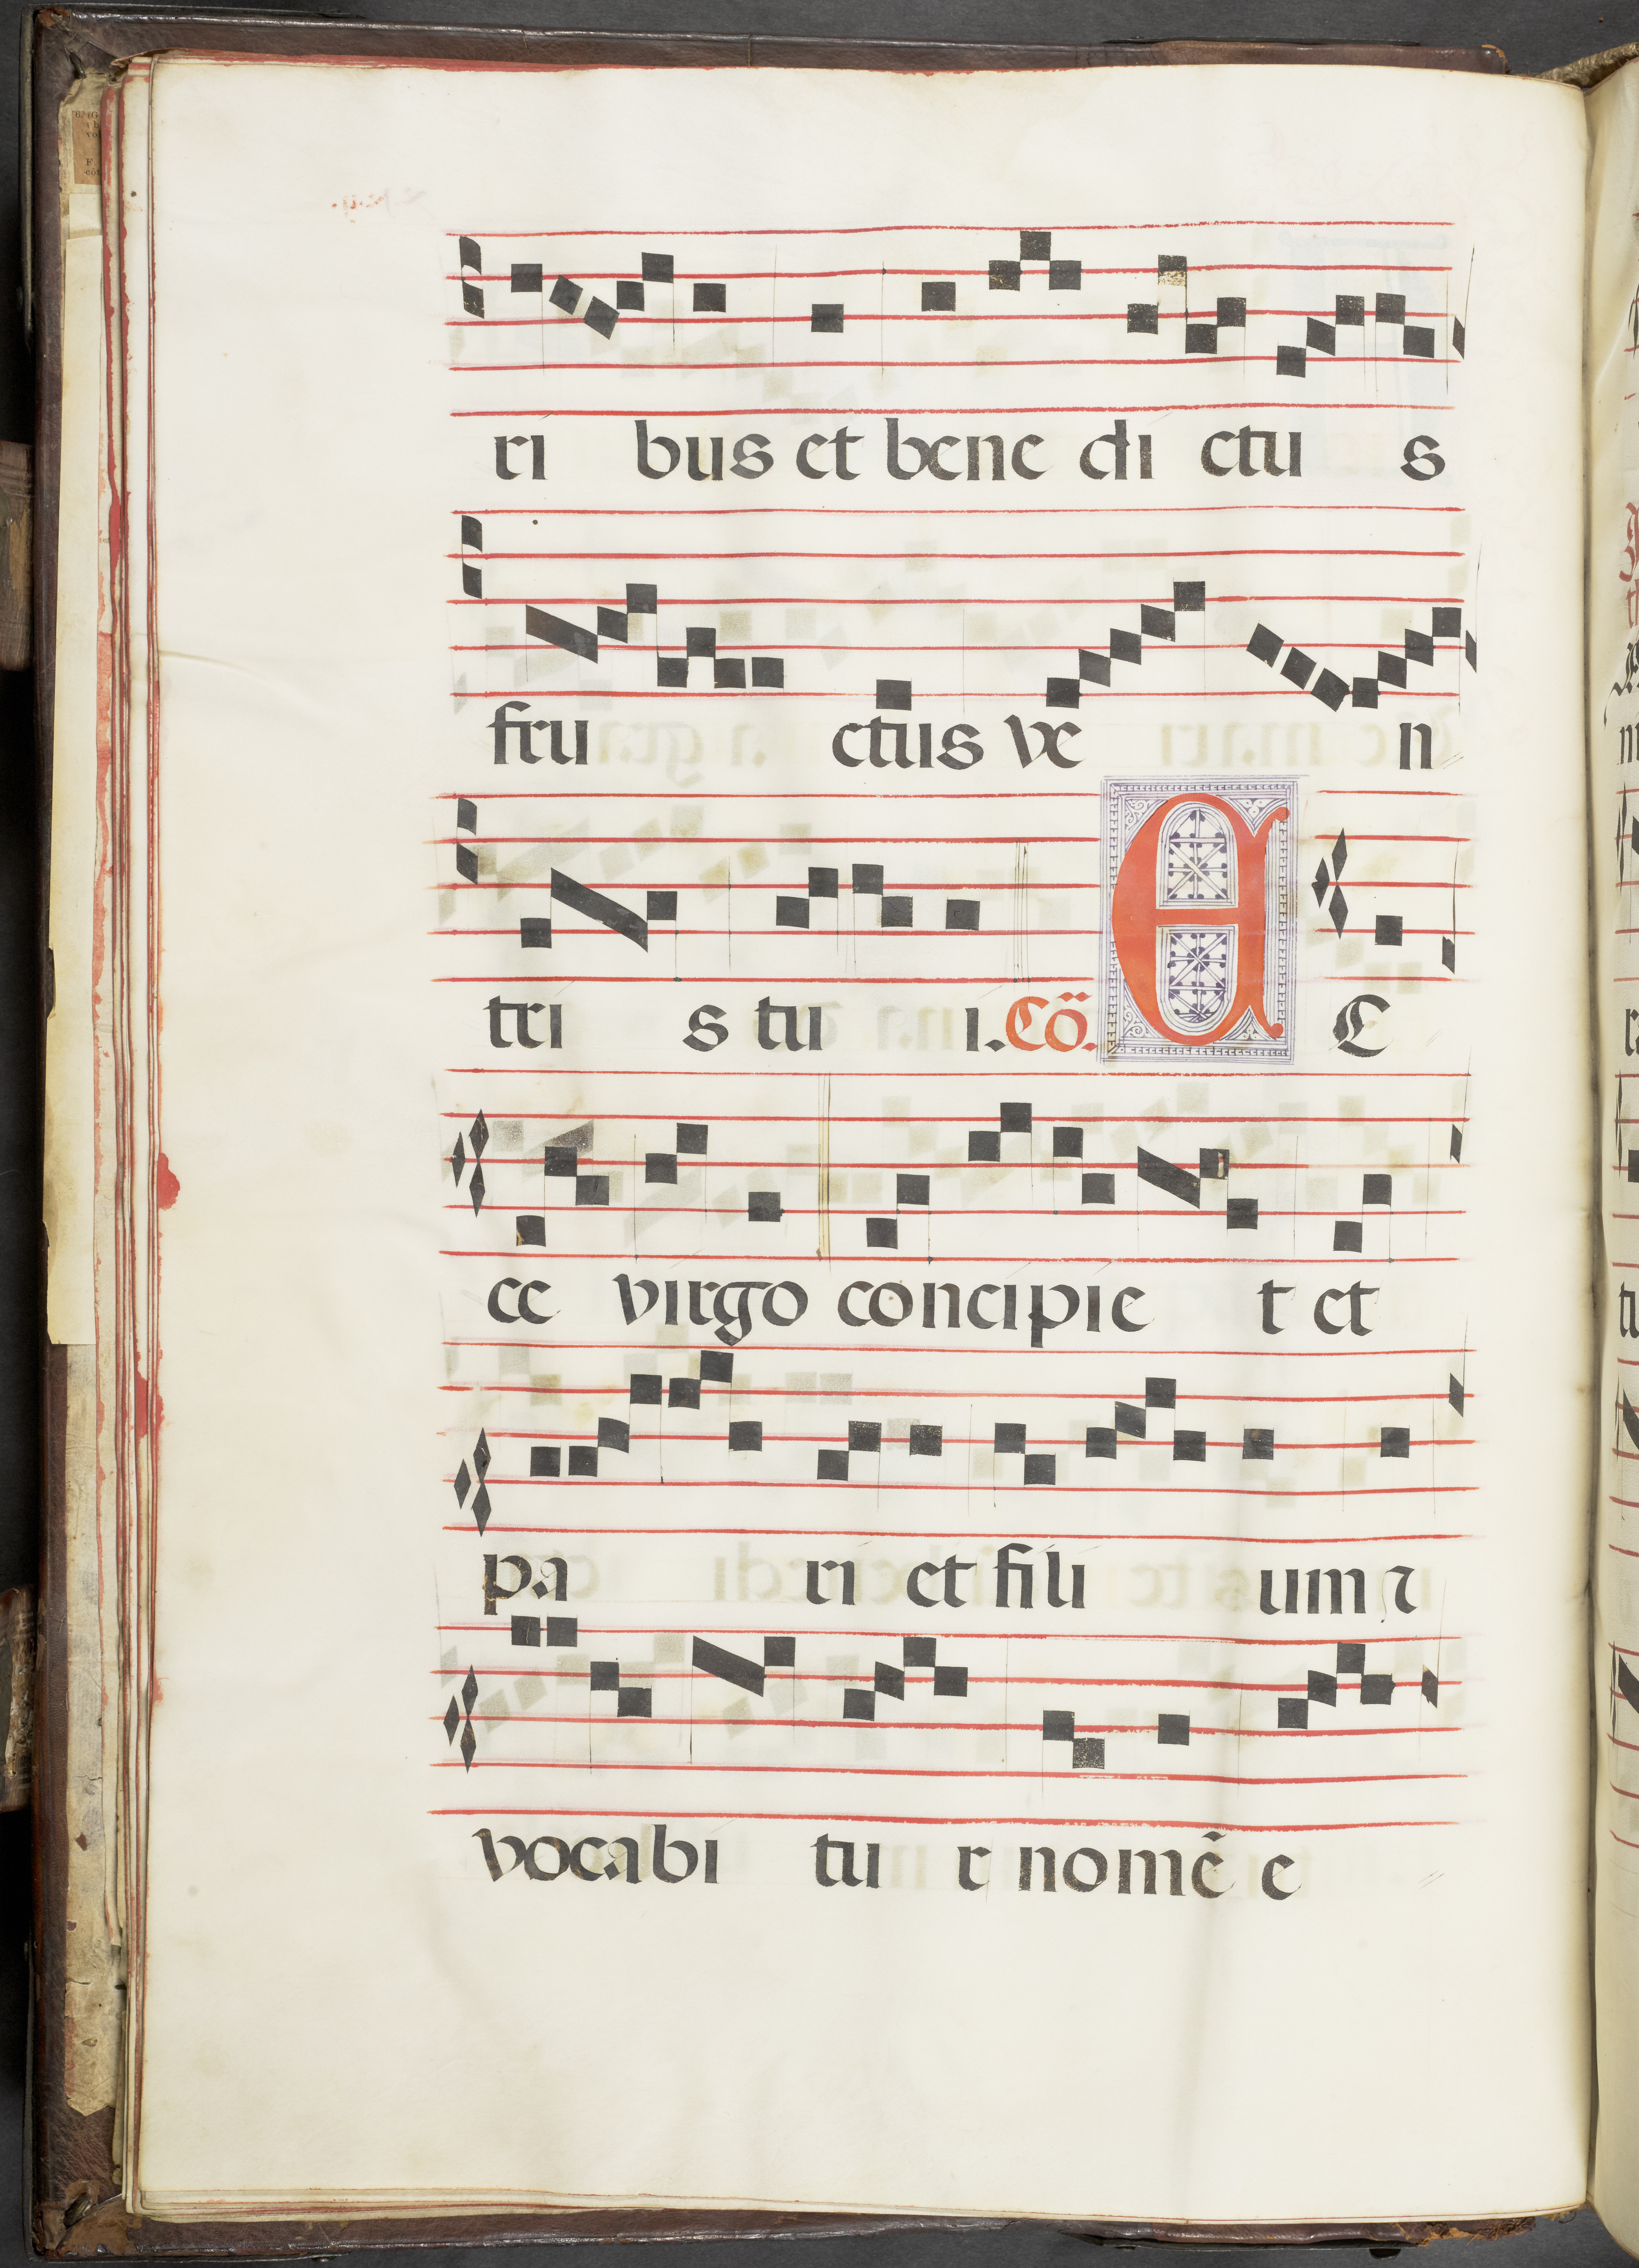 ri bus et bene di ctu s
fru ctus ve n
tri s tu i. Cõ. E C
ce virgo concipie t et
pa ri et fili um ⁊
vocabi tu r nomẽ e